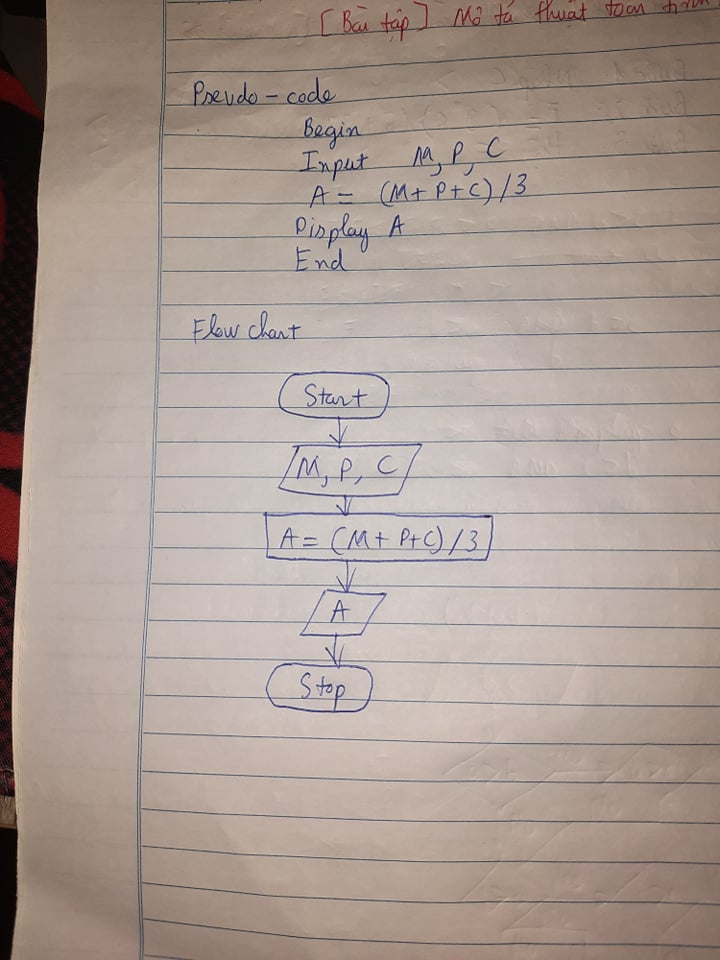 [Bài tập] Mô tả thuật toán tính
Pseudo-code
Begin
Input M, P, C
A = (M+P+C)/3
Display A
End
Flow chart
Start
M, P, C
A = (M+P+C)/3
A
Stop